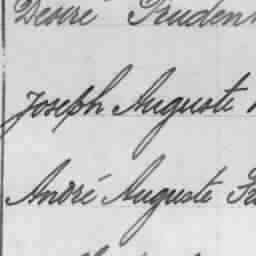 Désiré Pruden
Joseph Auguste
André Auguste